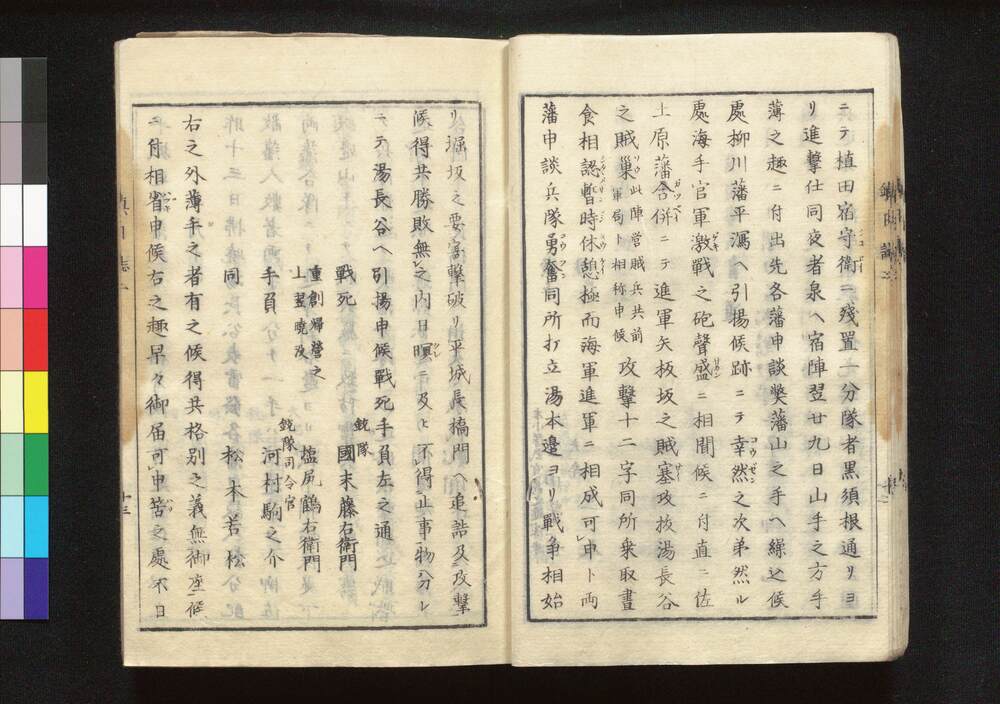 ニテ植田宿守衛ニ殘置一分隊者黒須根通リヨ
リ進撃仕同夜者泉ヘ宿陣翌廿九日山手之方手
薄之趣ニ付出先各藩申談獎藩山之手ヘ繰込候
處柳川藩平潟ヘ引揚候跡ニテ幸然之次第然ル
處海手官軍激戰之砲聲盛ニ相聞候ニ付直ニ佐
土原藩合併ニテ進軍矢板坂之賊塞攻拔湯長谷
之賊巣此陣営賊兵共前軍局ト相称申候攻撃十二字同所乗取晝
食相認暫時休憩極而海軍進軍ニ相成可申ト両
藩申談兵隊勇奮同所打立湯本邊ヨリ戰争相始
リ堀坂之要害撃破リ平城長橋門ヘ追詰及攻撃
候得共勝敗無之内日暝ニ及ヒ不得止事物分レ
ニテ湯長谷ヘ引揚申候戰死手負左之通
戰死 銃隊 國末藤右衛門
重創歸營之上翌曉死 塩尻鶴右衛門
手負 銃隊司令官 河村駒之介
同 松本若松
右之外薄手之者有之候得共格別之義無御座候
ニ付相省申候右之趣早々御届可申苦之處不日
十三